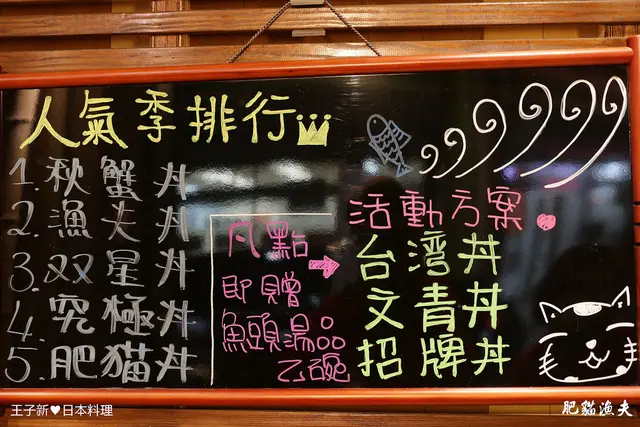 人氣季排行
1.秋蟹丼
2.漁夫丼
3.双星丼
4.究極丼
5.肥貓丼
凡點
即贈
魚頭湯
乙碗
活動方案
台湾丼
文青丼
招牌丼
王子新♥日本料理
肥貓漁夫